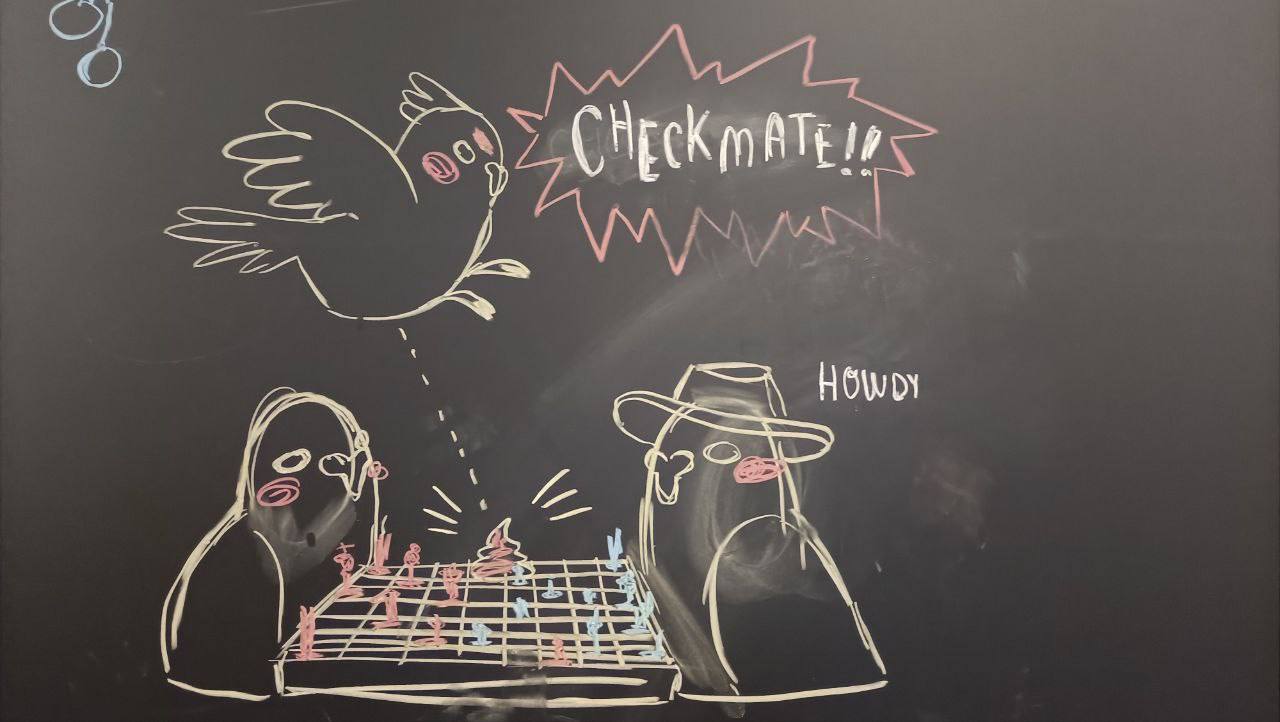 CHECKMATE!!
HOWDY